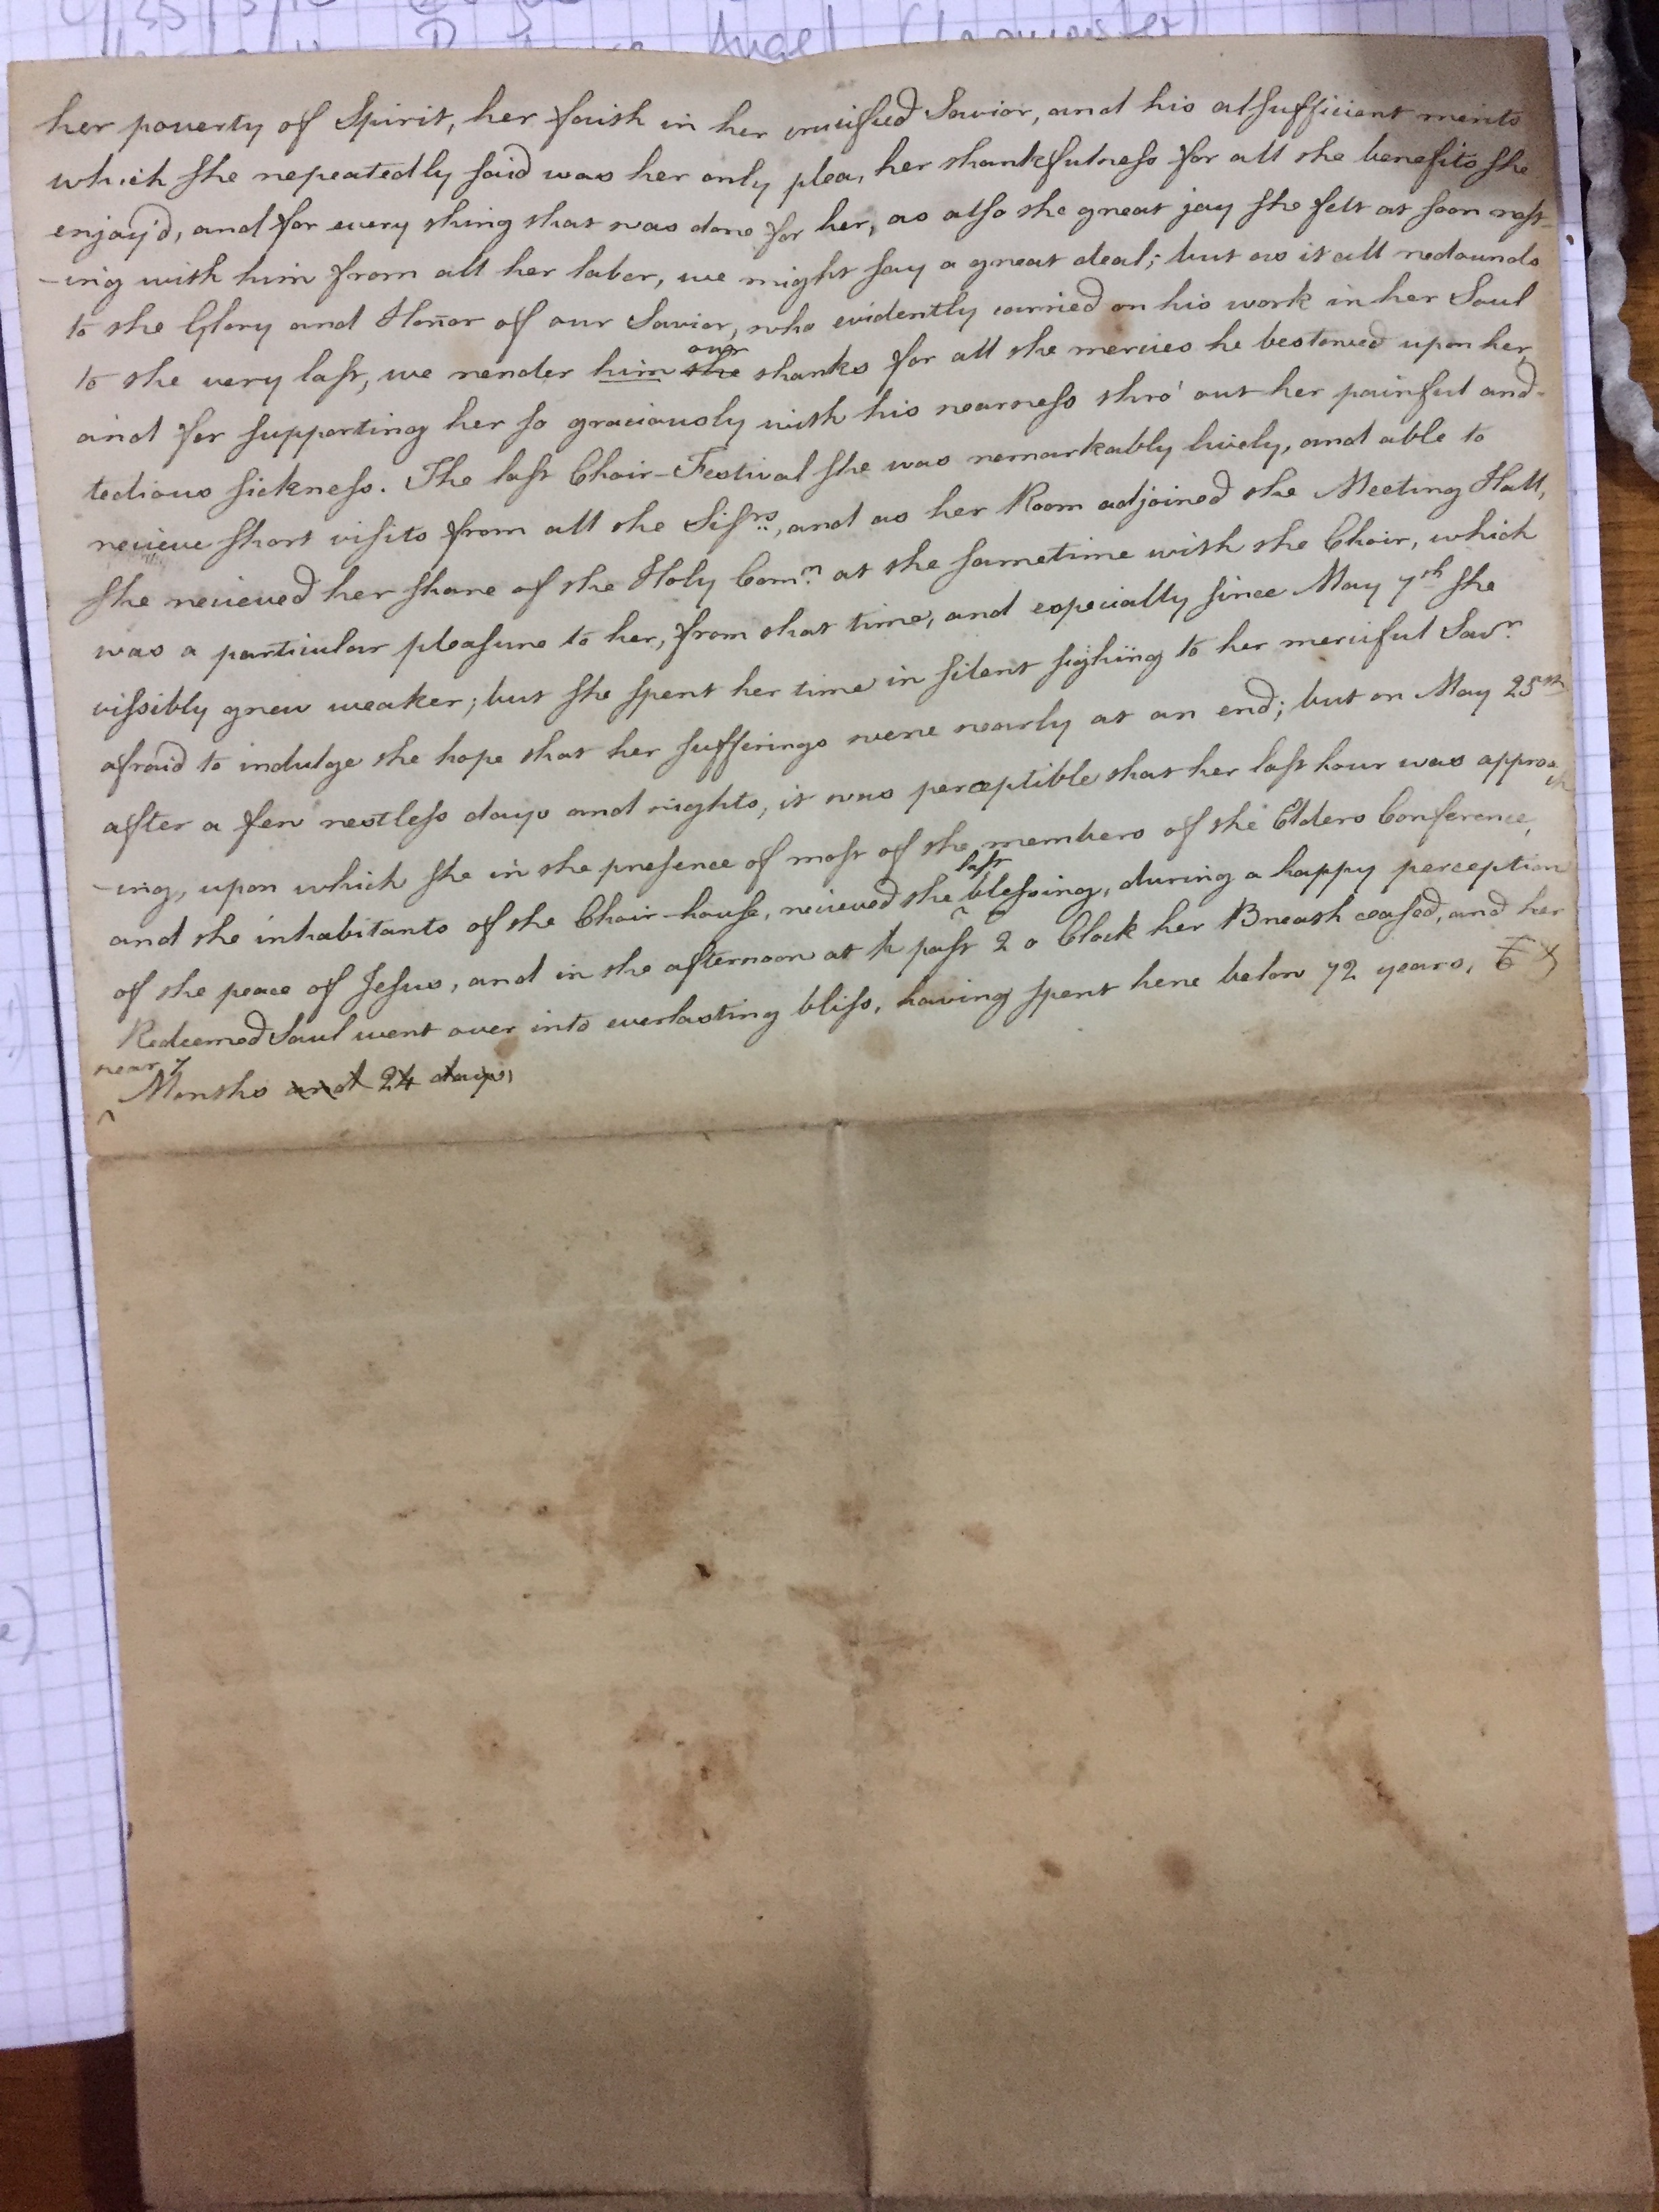 Angel (Leominster)
her poverty of Spirit, her faith in her crucified Savior, and his alsufficient merits
which she repeatedly said was her only plea, her thankfulness for all the benefits she
enjoy'd, and for every thing that was done for her, as also the great joy she felt at soon rest-
-ing with him from all her labor, we might say a great deal; but as it all redounds
to the Glory and Honor of our Savior, who evidently carried on his work in her Soul
to the very last, we render him the our thanks for all the mercies he bestowed upon her,
and for supporting her so graciously with his nearness thro' out her painful and
tedious sickness. The last Choir-Festival she was remarkably lively, and able to
recieve short visits from all the Sisrs., and as her Room adjoined the Meeting Hall,
she recieved her share of the Holy Comn. at the sametime with the Choir, which
was a particular pleasure to her, from that time, and especially since May 7th she
vissibly grew weaker; but she spent her time in silent sighing to her merciful Savr.
afraid to indulge the hope that her sufferings were nearly at an end; but on May 25th
after a few restless days and nights, it was perceptible that her last hour was approach
-ing, upon which she in the presence of most of the members of the Elders Conference,
and the inhabitants of the Choir-house, recieved the last blessing, during a happy perception
of the peace of Jesus, and in the afternoon at ½ past 2 o Clock her Breath ceased, and her
Redeemed Soul went over into everlasting bliss, having spent here below 72 years, 6
near 7
Months and 24 days,